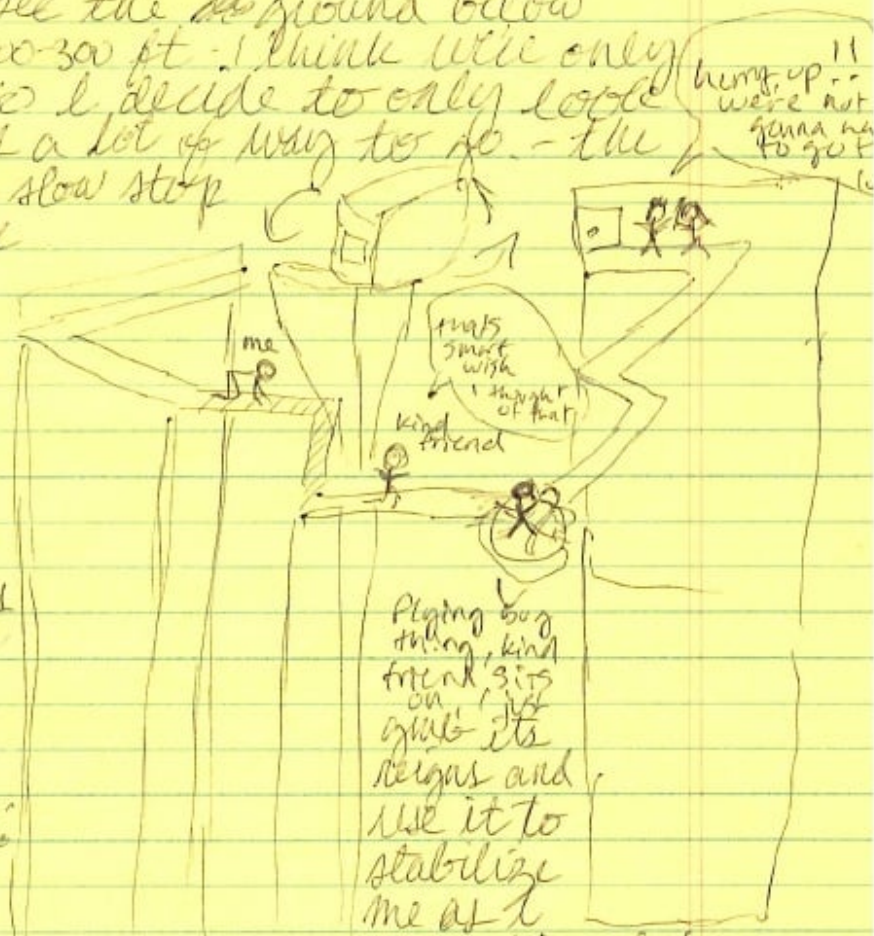 see the ground below
00-300 ft - I think we're only
so I decide to only look
a lot of way to go. - the
slow stop
hurry up!!
we're not
gonna
to go
me
thats
smart
wish
i thought
of that
kind
friend
Flying bug
thing, kind
friend sits
on, i just
grab its
reigns and
use it to
stabilize
me as I